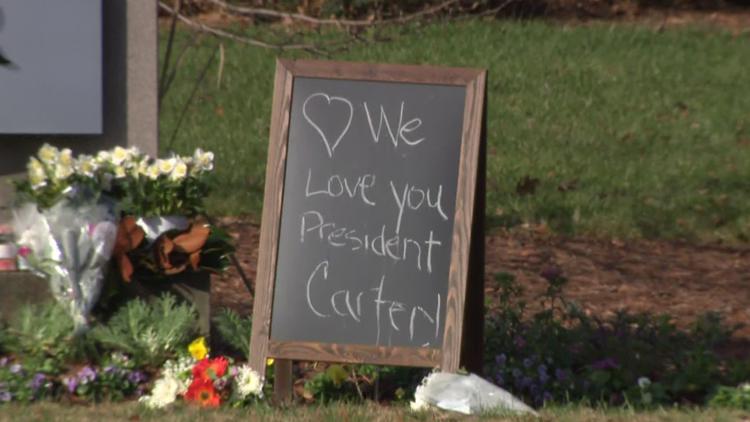 ♡ We
Love you
President
Carter!